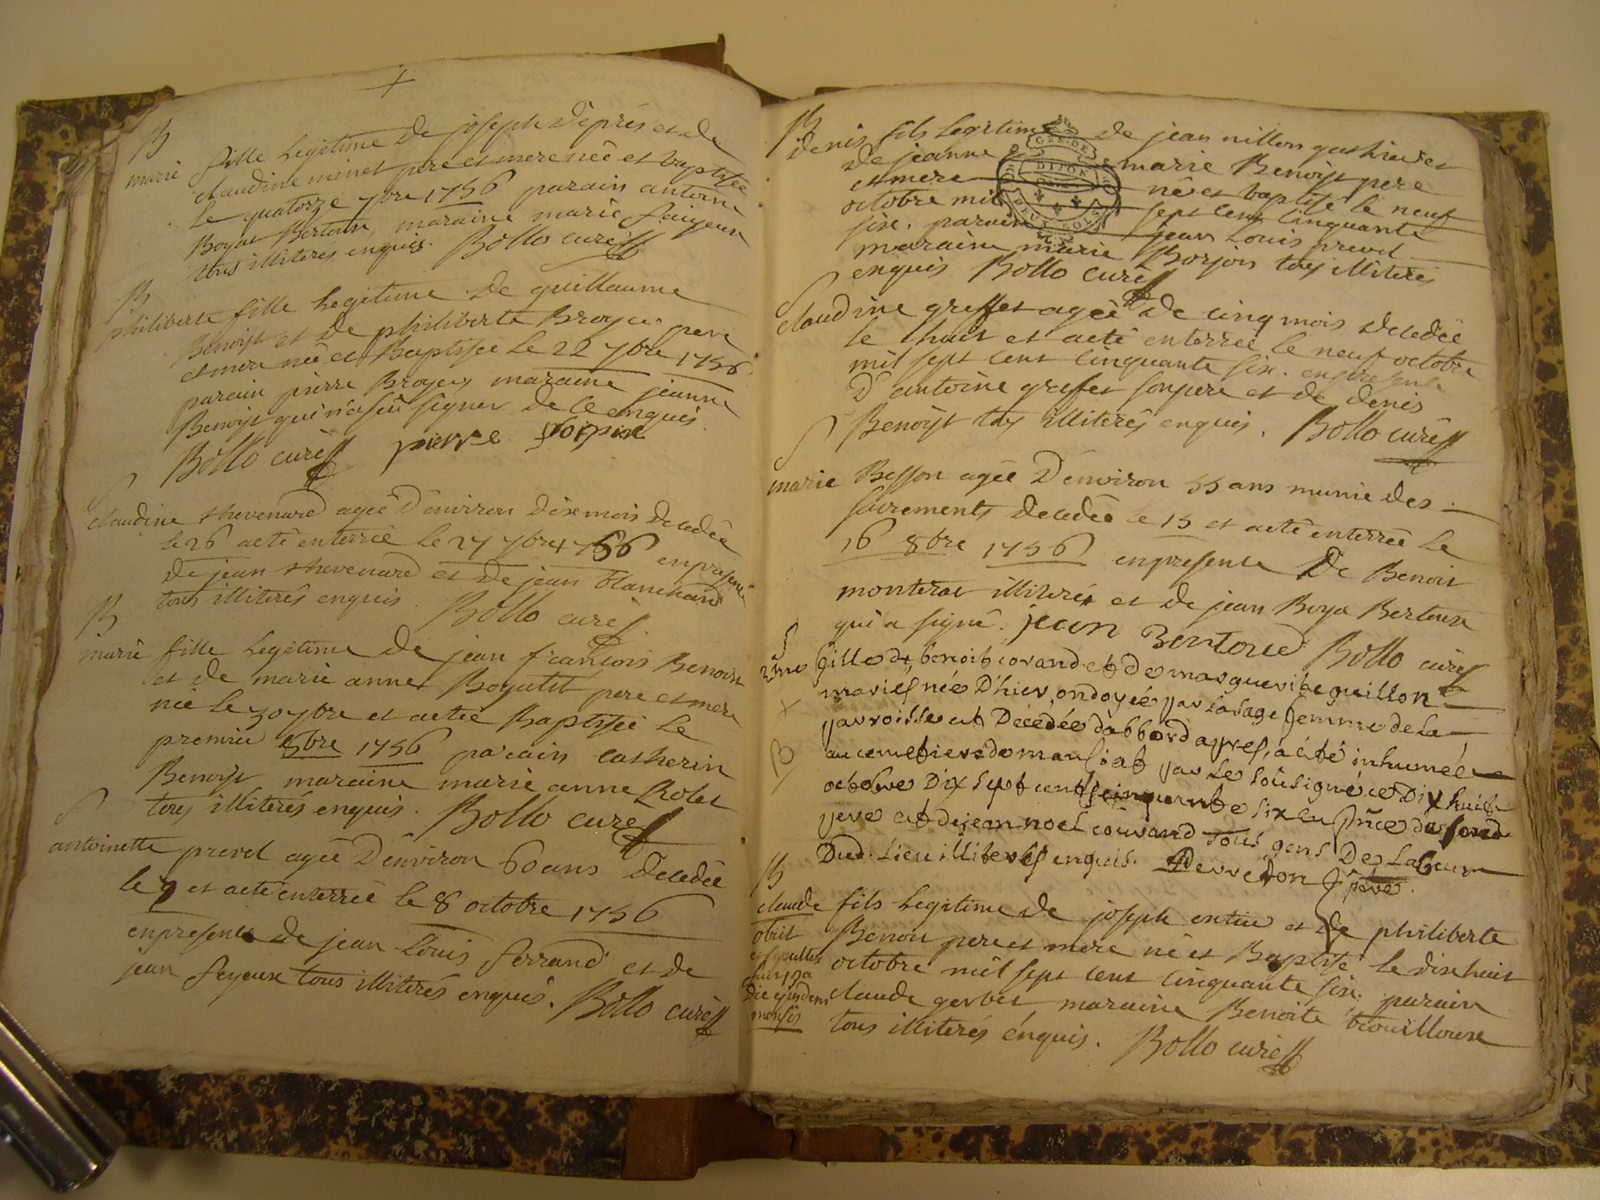 B
marie fille legitime de joseph déprés et de
claudine minet pere et mere née et baptisée
le quatorze 7bre 1756 parain antoine
Boyat Bertoux maraine marie seyeux
tous illiterés enquis. Bollo curé
B
philiberte fille legitime de guillaume
Benoist et de philiberte Broyer pere
et mere née et Baptisée le 22 7bre 1756
parain pierre Broyer maraine jeanne
Benoist qui n'a sçû signer de ce enquis.
Bollo curé pierre
S
claudine thevenard agée d'environ dixmois decedée
le 26 a eté enterrée le 27 7bre 1756 en presence
de jean thevenard et de jean Blanchard
tous illiterés enquis. Bollo curé
B
marie fille legitime de jean françois Benoist
et de marie anne Boyatet pere et mere
née le 30 7bre et a etée Baptisée le
premier 8bre 1756 parain catherin
Benoist maraine marie anne Rolet
tous illiterés enquis. Bollo curé
S
antoinette prevel agée d'environ 60 ans decedée
le 7 et a eté enterrée le 8 octobre 1756
en presence de jean Louis ferrand et de
jean seyeux tous illiterés enquis. Bollo curé
B
denis fils legitime de jean nillon et
de jeanne marre Benoist pere
et mere né et baptisé le neuf
octobre mil sept cent cinquante
six. parain jean Louis prevel
maraine marie Borjon tous illiterés
enquis Bollo curé
S
claudine greffet agée de cinq mois decedée
le huit et a eté enterrée le neuf octobre
mil sept cent cinquante six. en presence
d'antoine greffet son pere et de denis
Benoist tous illiterés enquis. Bollo curé
S
marie Besson agée d'environ 55 ans munie des
sacrements decedée le 15 et a eté enterrée le
16 8bre 1756 en presence de Benoit
monterat illiteré et de jean Boya Bertoux
qui a signé. jean Bertoud Bollo curé
S
fille de benoit corand et de marguerite guillon
mariés née d'hier, ondoyée par la sage femme de la
parroisse et décédée d'abbord apres, a été inhumée
au cemetiere de manziat par le soûsigné ce dix huit
octobre dix sept cent cinquante six en pñce de son
pere et de jean noel corand tous gens de labeur
dud. lieu illiterés enquis.
B
claude fils legitime de joseph entier et de philiberte
Benoit pere et mere né et Baptisé le dixhuit
octobre mil sept cent cinquante six. parain
claude gerbet maraine Benoite brouilloux
tous illiterés enquis. Bollo curé
obiit
et sepultus
die ejusdem
mensis
DIJON